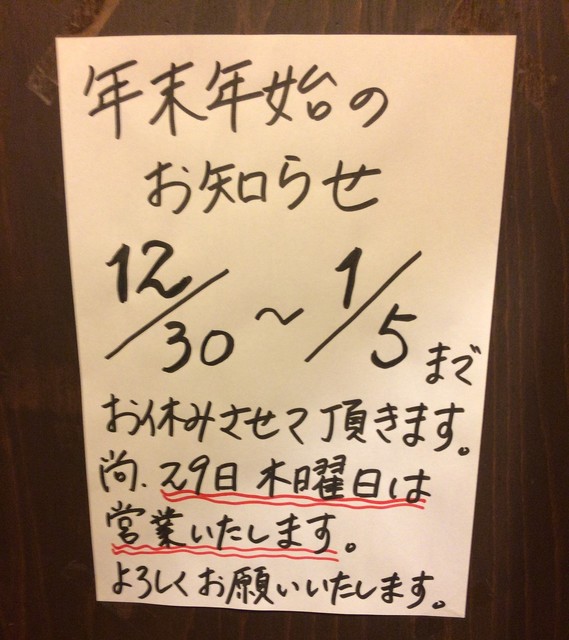 年末年始の
お知らせ
12/30～1/5まで
お休みさせて頂きます。
尚、29日 木曜日は
営業いたします。
よろしくお願いいたします。